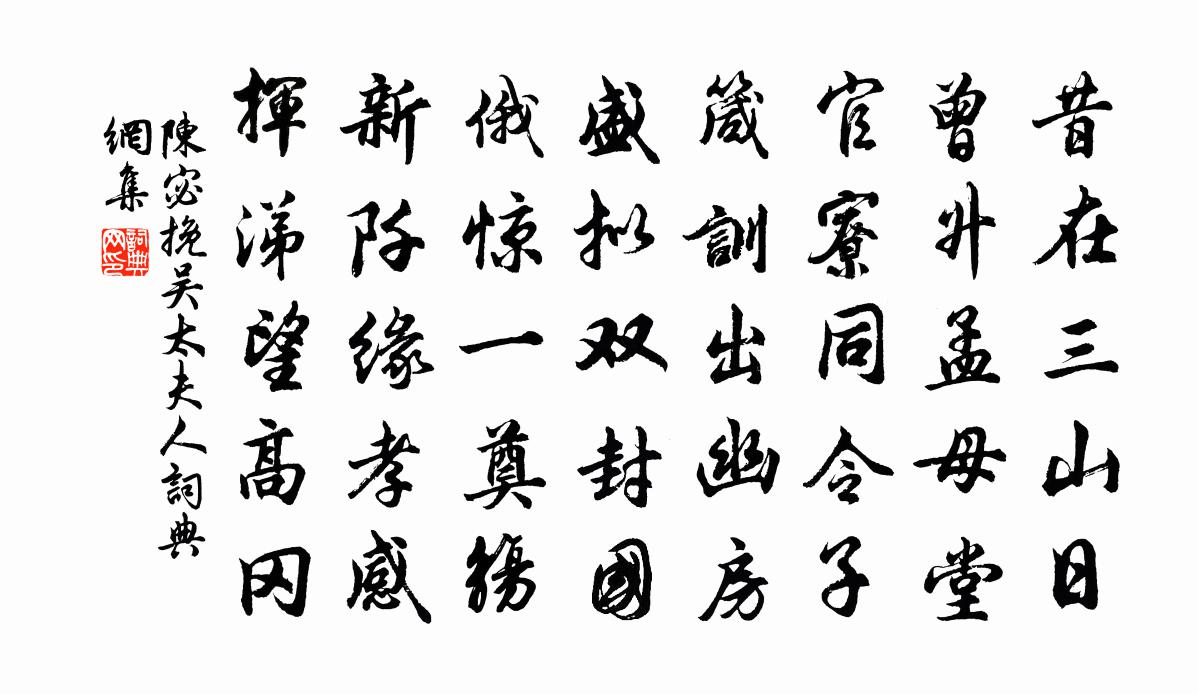 昔在三山日
曾升孟母堂
官寮同令子
箴訓出幽房
盛拟双封國
俄惊一奠觴
新阡缘孝感
揮涕望高冈
陳宓挽吴太夫人詞典
網集
詞典
网印